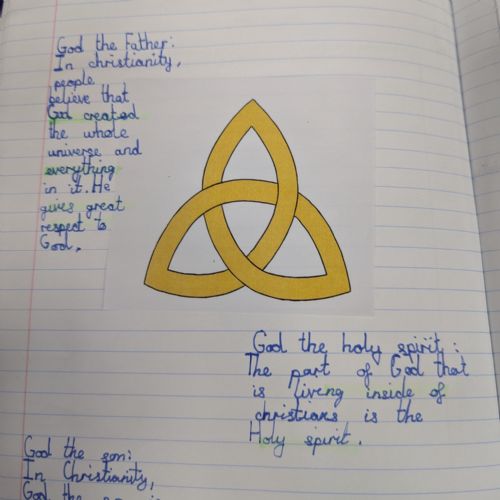 God the Father:
In christianity,
people
believe that
God created
the whole
universe and
everything
in it. He
gives great
respect to
God.
God the holy spirit:
The part of God that
is living inside of
christians is the
Holy spirit.
God the son:
In Christianity,
God the son is